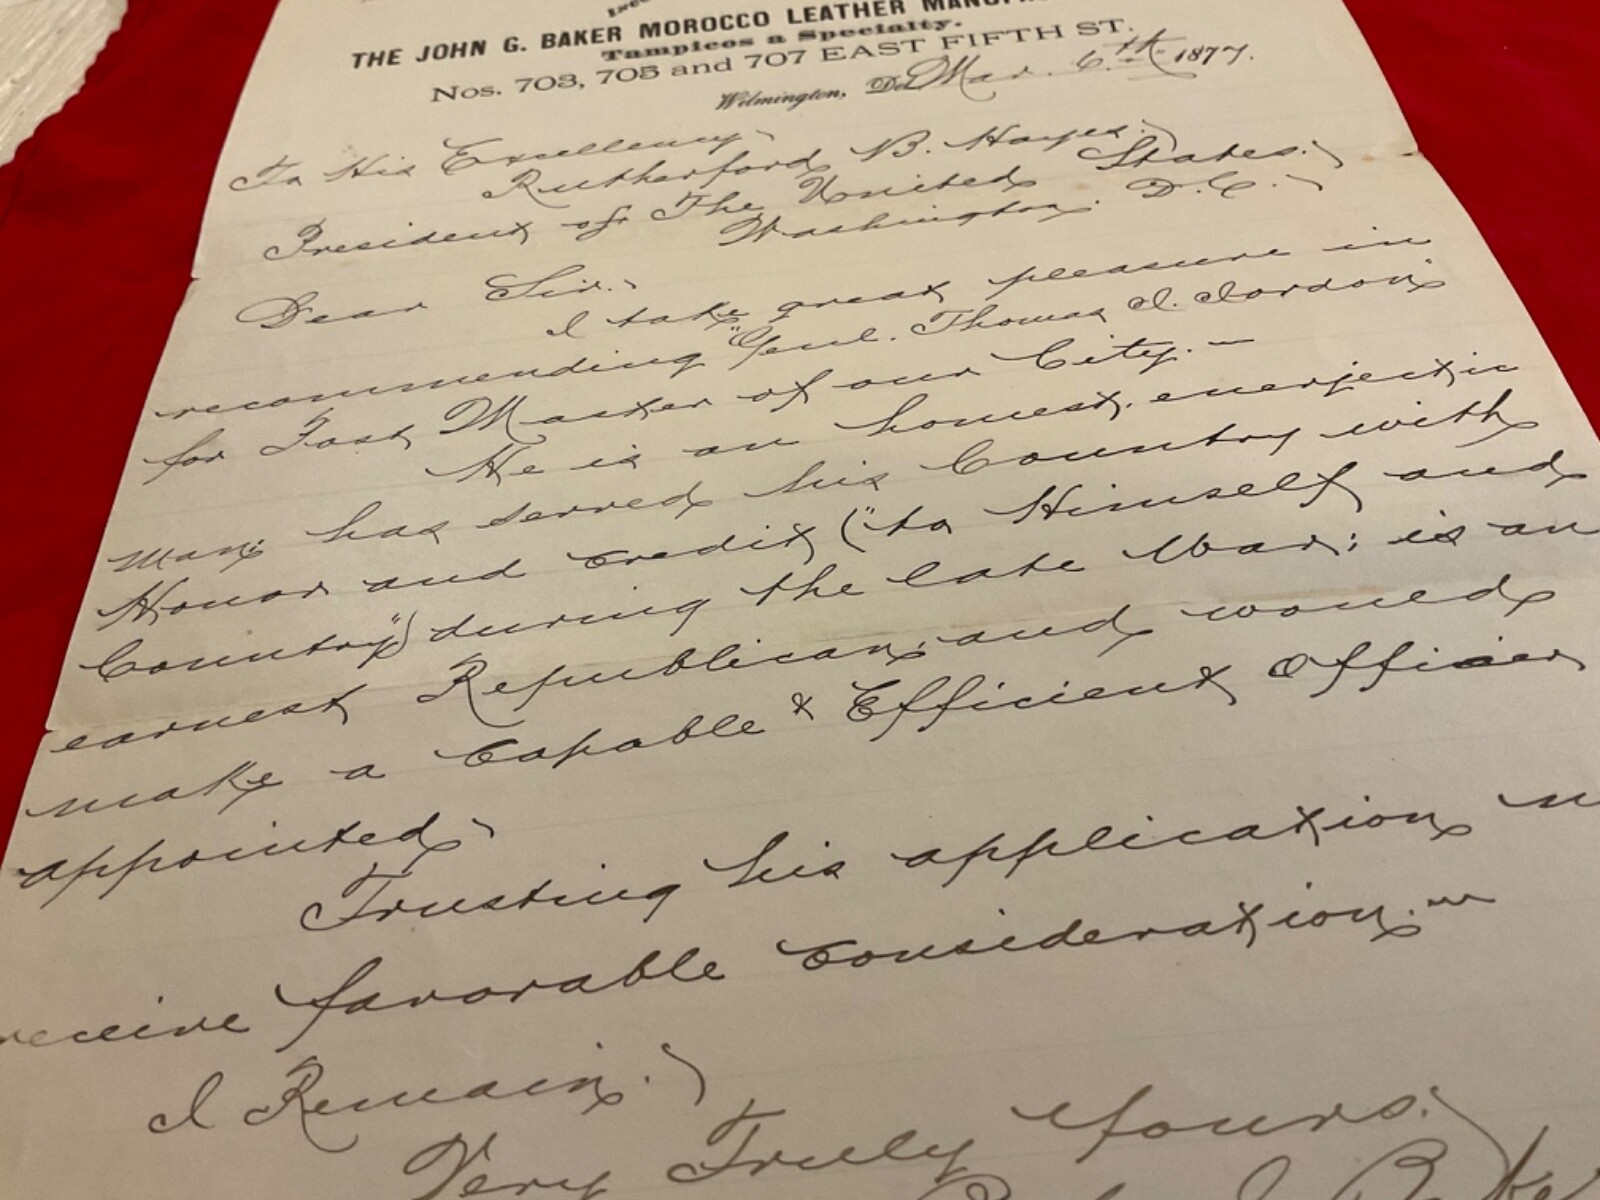 THE JOHN G. BAKER MOROCCO LEATHER
Tampicos a Specialty.
Nos. 703, 705 and 707 EAST FIFTH ST.
Wilmington, Del. Mar. 6th 1877.
To His Excellency
Rutherford B. Hayes.
President of The United States.
Washington. D.C.
Dear Sir.
I take great pleasure in
recommending "Genl. Thomas I. Jordon"
for Post Master of our City. —
He is an honest, enerjectic
man; has served his Country with
Honor and Credit ("to Himself and
Country") during the late War; is an
earnest Republican; and would
make a Capable & Efficient Officer
appointed
Trusting his application
receive favorable Consideration. —
I Remain.
Very Truly Yours.